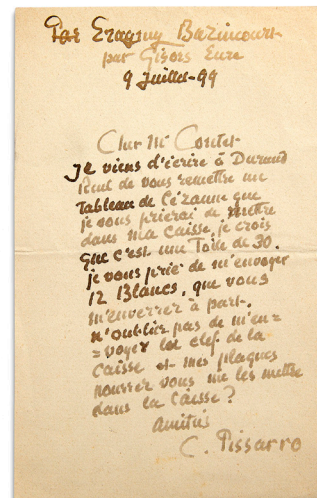 Par Eragny Bazincourt
par Gisors Eure
9 Juillet-99
Cher Mr Contet
Je viens d'écrire à Durand
Ruel de vous remettre un
Tableau de Cézanne que
je vous prierai de mettre
dans ma caisse, je crois
que c'est une Toile de 30.
je vous prie de m'envoyer
12 Blancs, que vous
m'enverrez à part.
n'oubliez pas de m'en=
=voyer les clef de la
caisse et mes plaques
pourrez vous me les mettre
dans la caisse ?
amitiés
C. Pissarro